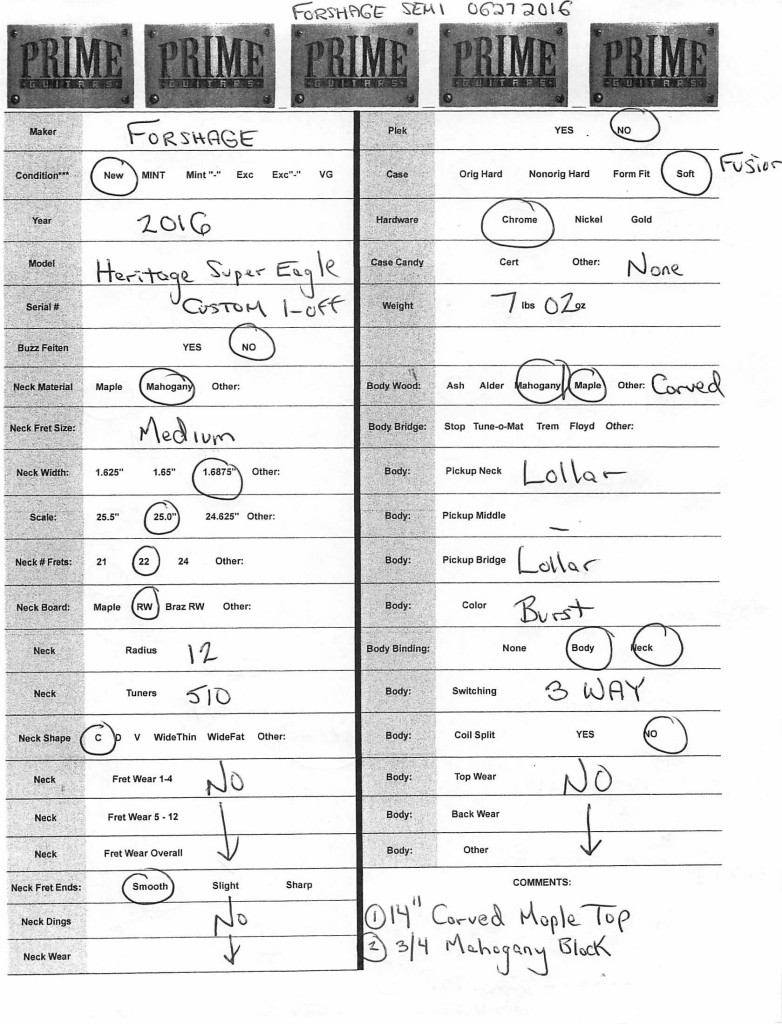 FORSHAGE SEMI 06272016
PRIME GUITARS PRIME GUITARS PRIME GUITARS PRIME GUITARS PRIME GUITARS
Maker FORSHAGE
Condition*** New MINT Mint "-" Exc Exc"-" VG
Year 2016
Model Heritage Super Eagle
Serial # CUSTOM 1-off
Buzz Feiten YES NO
Neck Material Maple Mahogany Other:
Neck Fret Size: Medium
Neck Width: 1.625" 1.65" 1.6875" Other:
Scale: 25.5" 25.0" 24.625" Other:
Neck # Frets: 21 22 24 Other:
Neck Board: Maple RW Braz RW Other:
Neck Radius 12
Neck Tuners 510
Neck Shape C D V WideThin WideFat Other:
Neck Fret Wear 1-4 NO
Neck Fret Wear 5 - 12
Neck Fret Wear Overall
Neck Fret Ends: Smooth Slight Sharp
Neck Dings No
Neck Wear
Plek YES NO
Case Orig Hard Nonorig Hard Form Fit Soft Fusion
Hardware Chrome Nickel Gold
Case Candy Cert Other: None
Weight 7 lbs 02 oz
Body Wood: Ash Alder Mahogany Maple Other: Carved
Body Bridge: Stop Tune-o-Mat Trem Floyd Other:
Body: Pickup Neck Lollar
Body: Pickup Middle –
Body: Pickup Bridge Lollar
Body: Color Burst
Body Binding: None Body Neck
Body: Switching 3 WAY
Body: Coil Split YES NO
Body: Top Wear NO
Body: Back Wear
Body: Other
COMMENTS:
① 14" Carved Maple Top
② 3/4 Mahogany Block